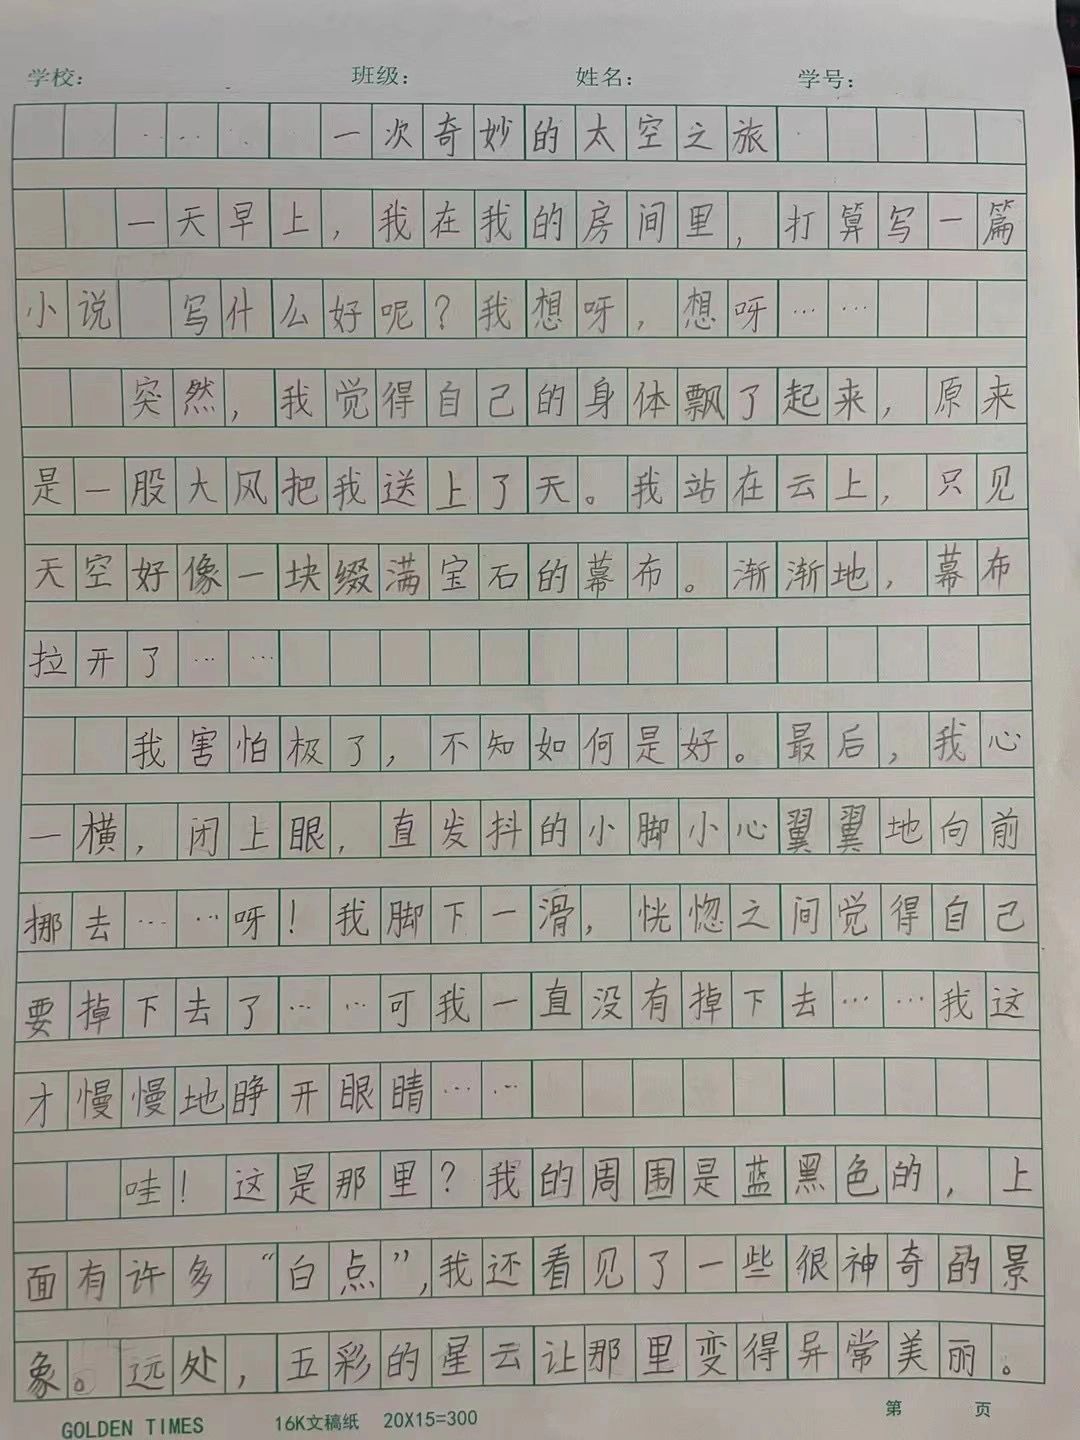 学校： 班级： 姓名： 学号：
一次奇妙的太空之旅
一天早上，我在我的房间里，打算写一篇
小说 写什么好呢？我想呀，想呀……
突然，我觉得自己的身体飘了起来，原来
是一股大风把我送上了天。我站在云上，只见
天空好像一块缀满宝石的幕布。渐渐地，幕布
拉开了……
我害怕极了，不知如何是好。最后，我心
一横，闭上眼，直发抖的小脚小心翼翼地向前
挪去……呀！我脚下一滑，恍惚之间觉得自己
要掉下去了……可我一直没有掉下去……我这
才慢慢地睁开眼睛……
哇！这是那里？我的周围是蓝黑色的，上
面有许多“白点”，我还看见了一些很神奇的景
象。远处，五彩的星云让那里变得异常美丽。
GOLDEN TIMES 16K文稿纸 20X15=300 第 页